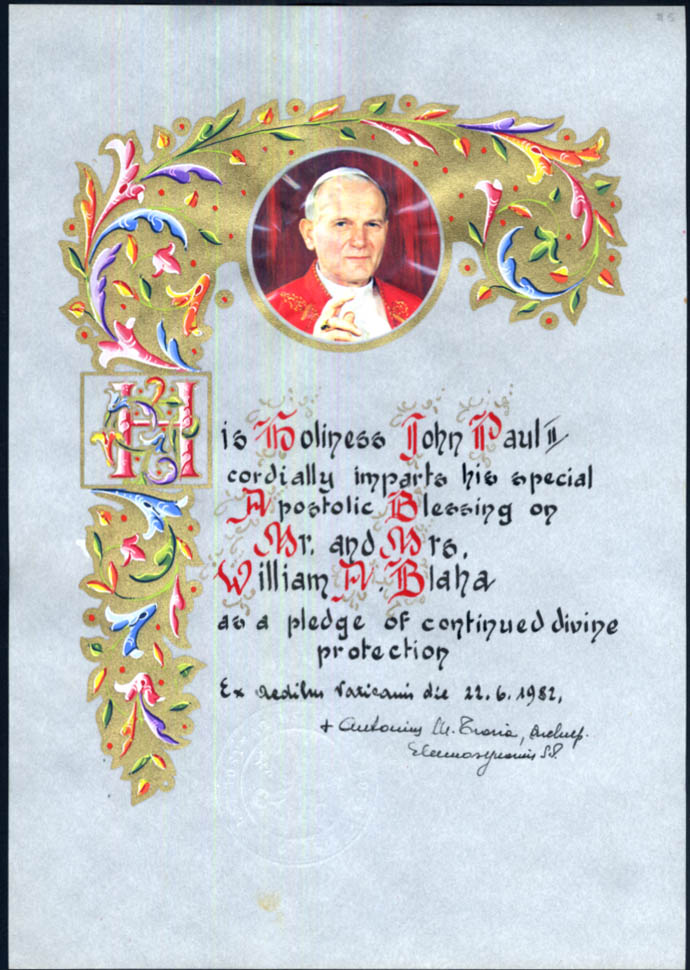 His Holiness John Paul II
cordially imparts his special
Apostolic Blessing on
Mr. and Mrs.
William A. Blaha
as a pledge of continued divine
protection
Ex Aedibus Vaticanis die 22.6.1982,
+ Antonius M. Travia, Archiep.
Eleemosynarius SS.